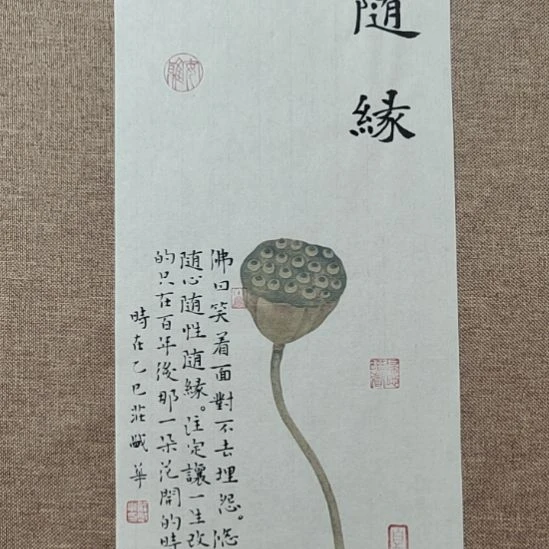 随緣
佛曰笑着面對不去埋怨。悠
随心随性随緣。注定讓一生改
的只在百年後那一朵花開的時
時在乙巳